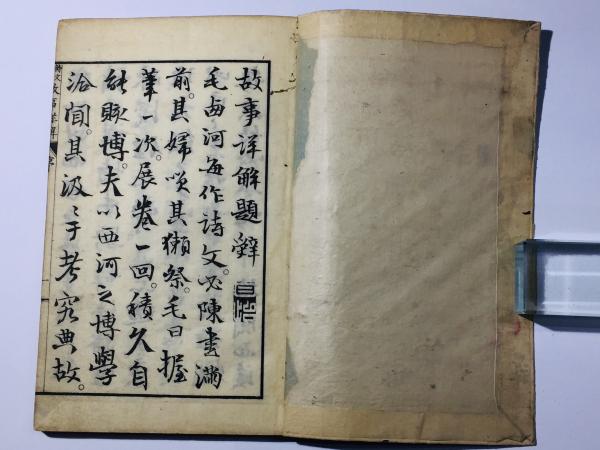 故事詳解題辭
毛西河每作詩文。必陳書滿
前。其婦咲其獺祭。毛曰握
筆一次。展卷一回。積久自
能賅博。夫以西河之博學
洽聞。其汲〻于考究典故。
故事詳解